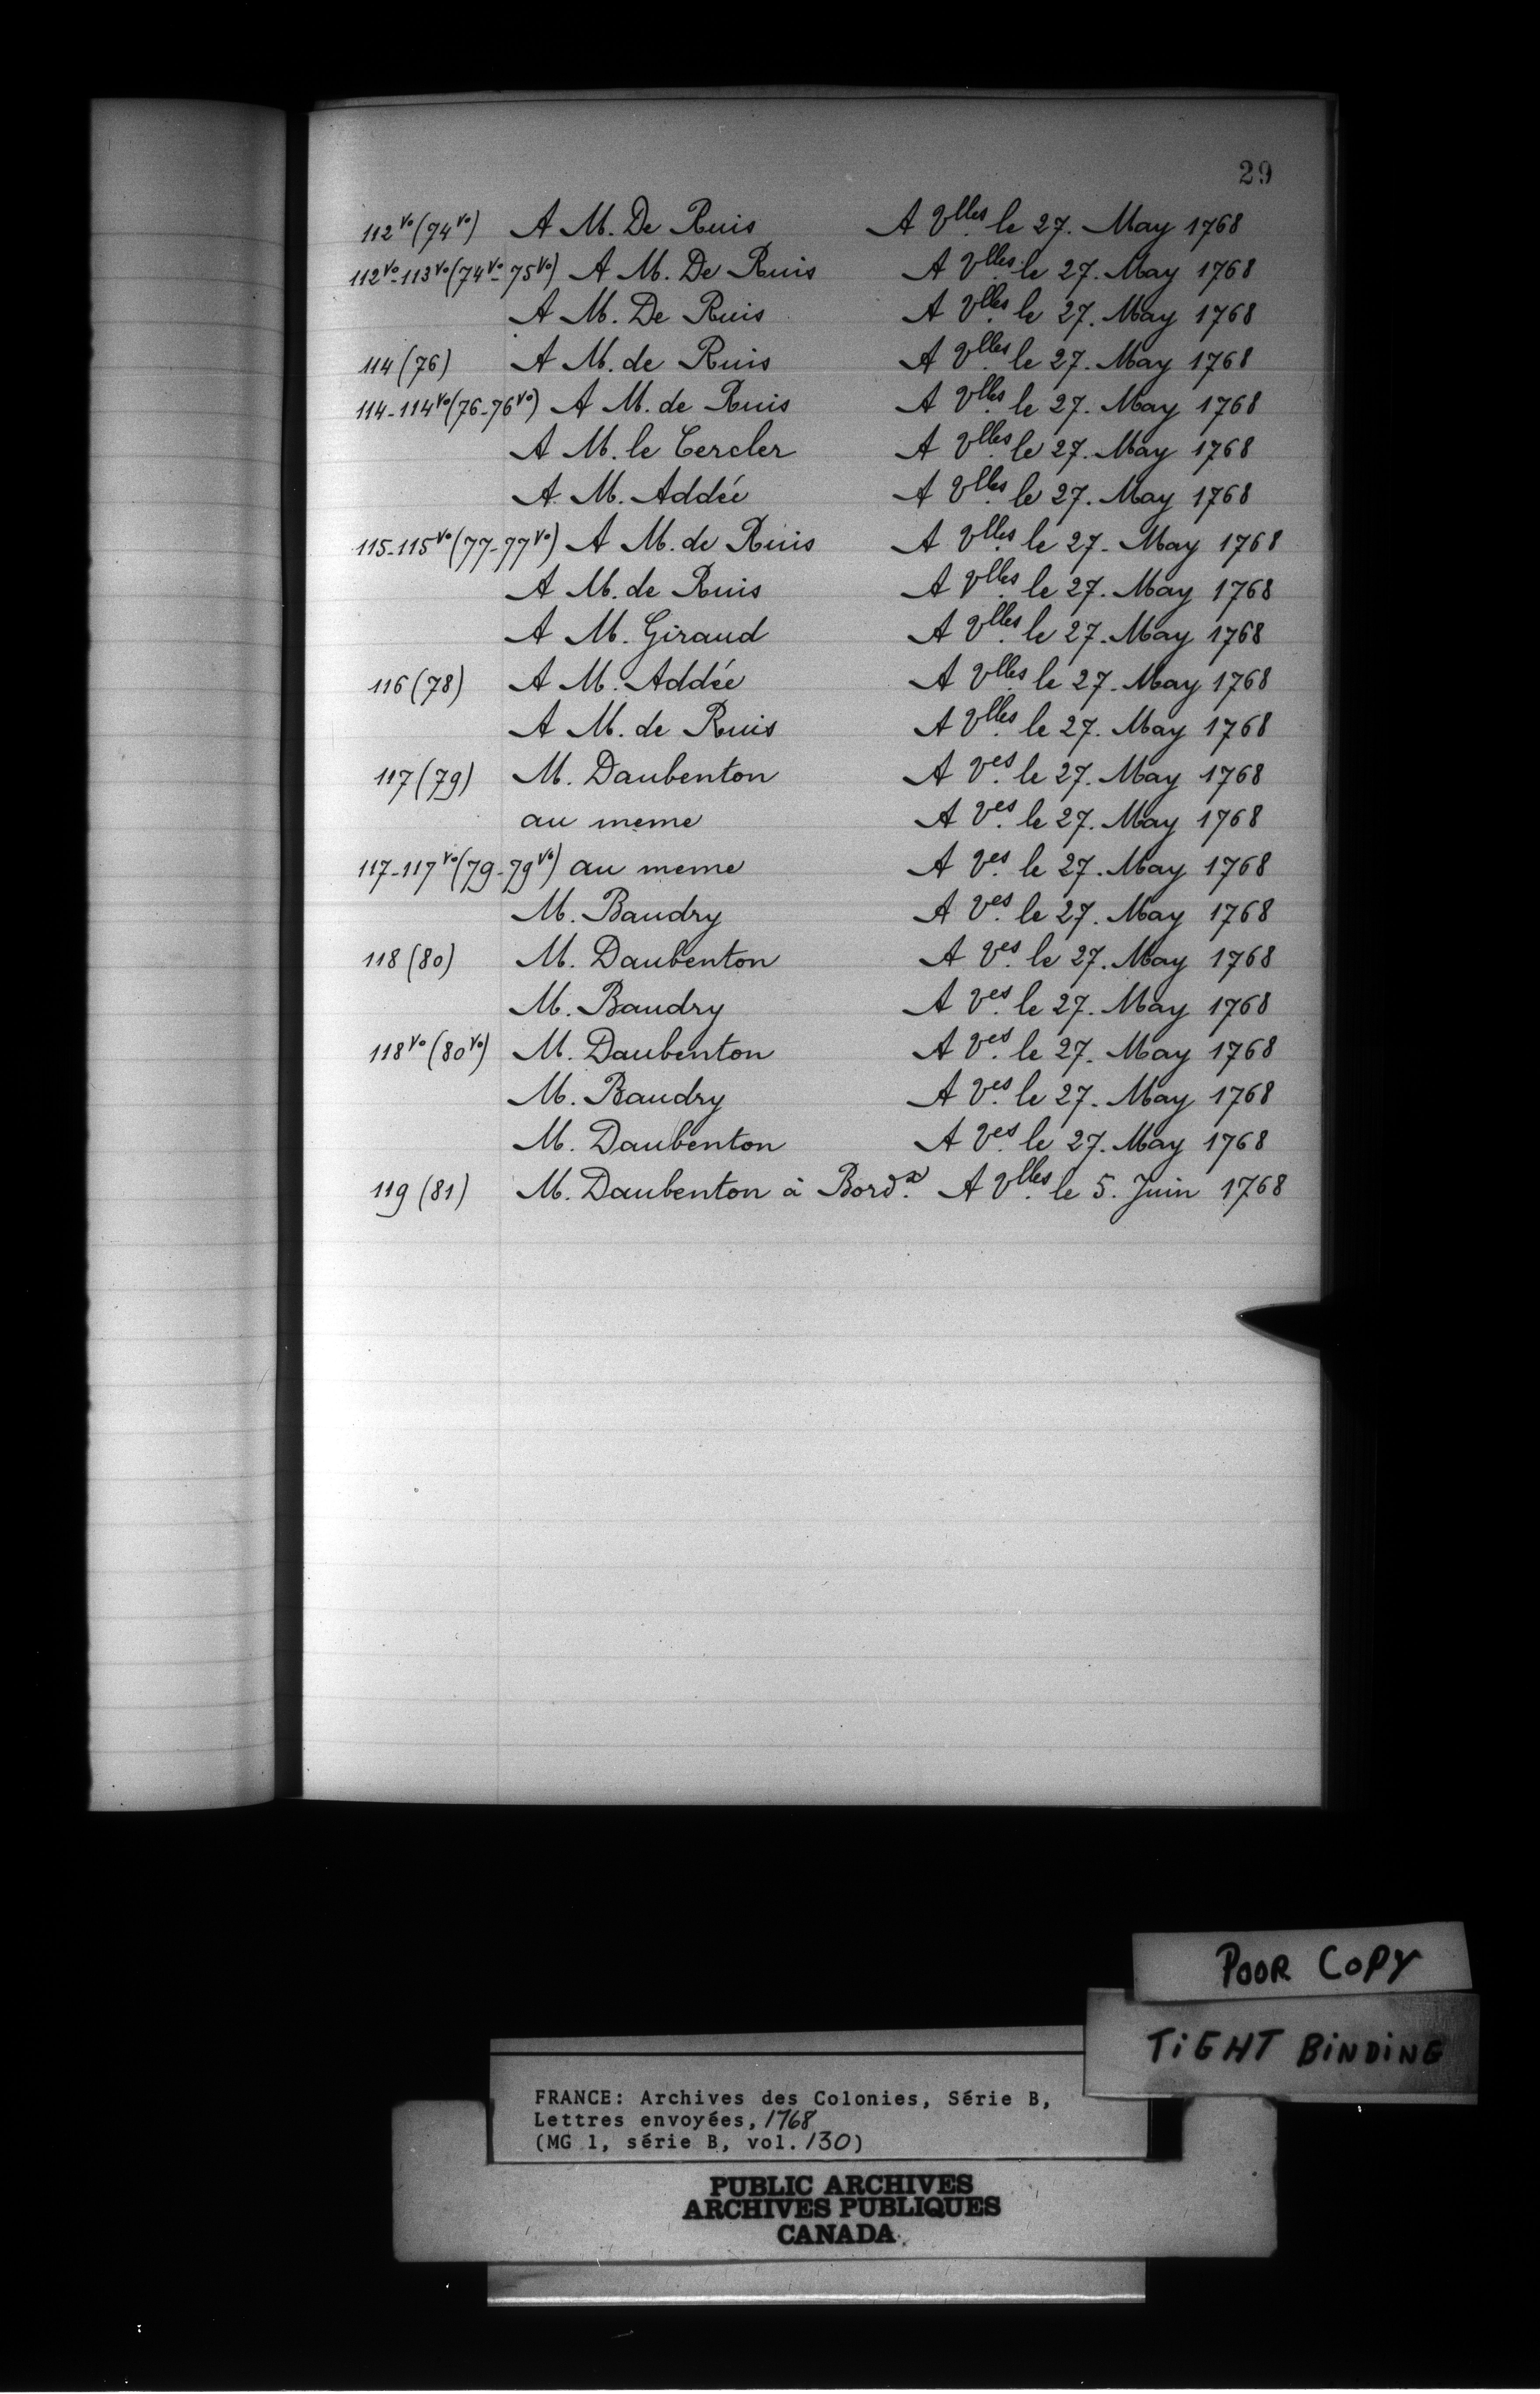 29
112vo (74vo) A M. De Ruis A Vlles. le 27. May 1768
112vo-113vo (74vo-75vo) A M. De Ruis A Vlles. le 27. May 1768
A M. De Ruis A Vlles. le 27. May 1768
114 (76) A M. de Ruis A Vlles. le 27. May 1768
114-114vo (76-76vo) A M. de Ruis A Vlles. le 27. May 1768
A M. le Cercler A Vlles. le 27. May 1768
A M. Addée A Vlles. le 27. May 1768
115-115vo (77-77vo) A M. de Ruis A Vlles. le 27. May 1768
A M. de Ruis A Vlles. le 27. May 1768
A M. Giraud A Vlles. le 27. May 1768
116 (78) A M. Addée A Vlles. le 27. May 1768
A M. de Ruis A Vlles. le 27. May 1768
117 (79) M. Daubenton A Ves. le 27. May 1768
au meme A Ves. le 27. May 1768
117-117vo (79-79vo) au meme A Ves. le 27. May 1768
M. Baudry A Ves. le 27. May 1768
118 (80) M. Daubenton A Ves. le 27. May 1768
M. Baudry A Ves. le 27. May 1768
118vo (80vo) M. Daubenton A Ves. le 27. May 1768
M. Baudry A Ves. le 27. May 1768
M. Daubenton A Ves. le 27. May 1768
119 (81) M. Daubenton à Bordx. A Vlles. le 5. Juin 1768
POOR COPY
TIGHT BINDING
FRANCE: Archives des Colonies, Série B,
Lettres envoyées, 1768
(MG 1, série B, vol. 130)
PUBLIC ARCHIVES
ARCHIVES PUBLIQUES
CANADA